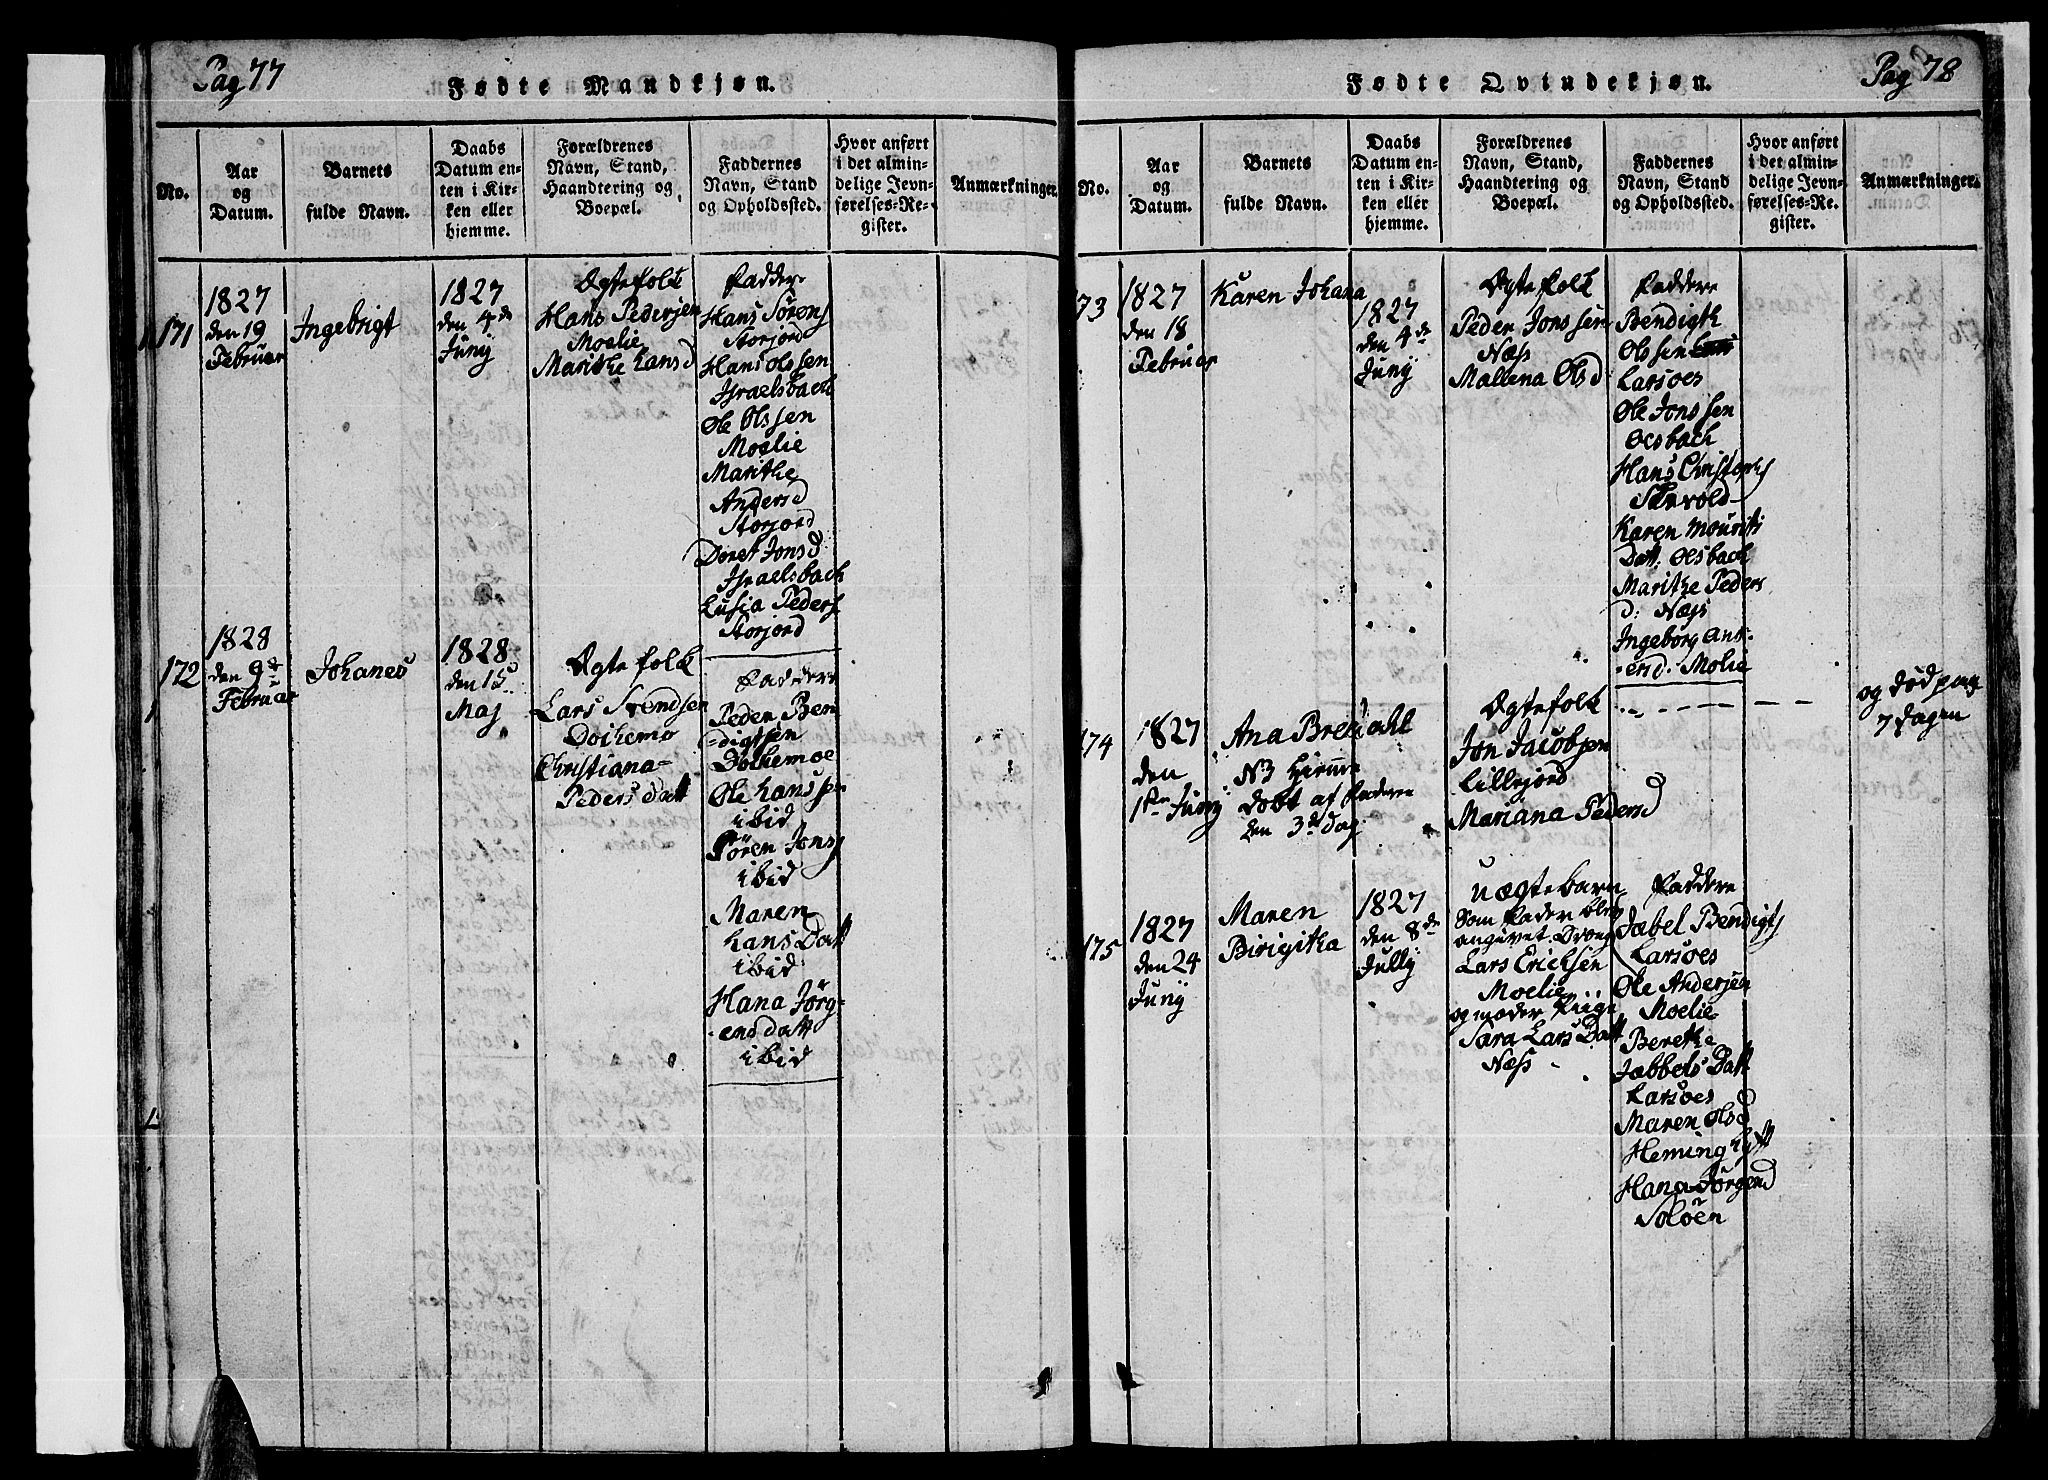 Pag 77
Fødte Mandkjøn.
No.
Aar
og
Datum.
Barnets
fulde Navn.
Daabs
Datum en-
ten i Kir-
ken eller
hjemme.
Forældrenes
Navn, Stand,
Haandtering og
Boepæl.
Faddernes
Navn, Stand
og Opholdssted.
Hvor anført
i det almin-
delige Jevn-
førelses-Re-
gister.
Anmærkninger.
171
1827
den 19
Februar
Ingebrigt
1827
den 4de
Junÿ
Ægtefolk
Hans Pedersen
Moelie
Marithe Hansd
Fadder
Hans Sörens
Storjord
Hans Olssen
Israelsbach
Ole Olssen
Moelie
Marithe
Andersd
Storjord
Doret Jonsd
Israelsbach
Lusia Peders
Storjord
172
1828
den 9de
Februar
Johanes
1828
den 15
Maj
Ægtefolk
Lars Svendsen
Dokemo
Christiana
Peders datt
Faddere
Peder Ben
=digtsen
Dokemoe
Ole Hanssen
ibid
Sören Jons
ibid
Maren
Hans Datt
ibid
Hana Jörg=
=ens datt
ibid
Pag 78
Fødte Qvindekjøn.
No.
Aar
og
Datum.
Barnets
fulde Navn.
Daabs
Datum en-
ten i Kir-
ken eller
hjemme.
Forældrenes
Navn, Stand,
Haandtering og
Boepæl.
Faddernes
Navn, Stand
og Opholdssted.
Hvor anført
i det almin-
delige Jevn-
førelses-Re-
gister.
Anmærkninger.
73
1827
den 18
Februar
Karen Johana
1827
den 4de
Junÿ
Ægtefolk
Peder Jonssen
Næss
Mallena Olsd
Faddere
Bendigth
Olssen
Larsoes
Ole Jonssen
Olsbach
Hans Christophs
Karen Mourits
Datt: Olsbach
Marithe Peders
d: Næss
Ingeborg And-
ersd: Molie
174
1827
den
1ste Junÿ
Ana Bredahl
N3 hieme
döbt af Fadere
den 3de dag
Ægtefolk
Jon Jacobsen
Lillejord
Mariana Pedersd
og död paa
7 dagen
175
1827
den 24
Junÿ
Maren
Birigitha
1827
den 8de
Jullÿ
Uægte barn
Som Fader blev
angivet: Dreng
Lars Ericksen
Moelie
og moder Piige
Sara Lars Datt
Næss
Faddere
Jabel Bendigts
Larsoes
Ole Andersen
Moelie
Berethe
Jabbels Datt
Larsoes
Maren Olsd
Heming
Hana Jörgend
Soløen